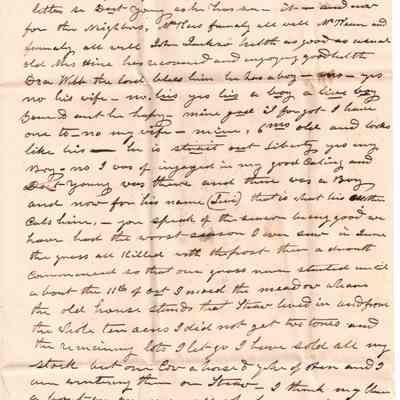 letter so Doct Young as he has an it and now
for the Neighbors, Mr family all well Mr and
family all well John helth as good as usual
old Mrs Hine has recovered and enjoying good helth
Dea Webb the lord bless him he has a boy yes
no his wife no, his yes his a boy a live boy
and he happy mine I forgot I have
one to no my wife mine, 6 mos old and looks
like his he is strait out Liberty yes my
Boy no I was of ingaged in my good Calling and
Doct Young was there and there was a Boy
and now for his name that is what his Mother
Cals him, you speak of the season being good we
have had the worst season I ever saw in June
the grass all Killed with the frost then a drouth
Commenced so that our grass never started until
about the 11th of Oct I mow'd the meadow where
the old house stands that lived in and from
the whole ten acres I did not get two tones and
the remaining lots I let go I have sold all my
stock but one Cow a horse & yoke of oxen and I
am wintering them on Straw I think my